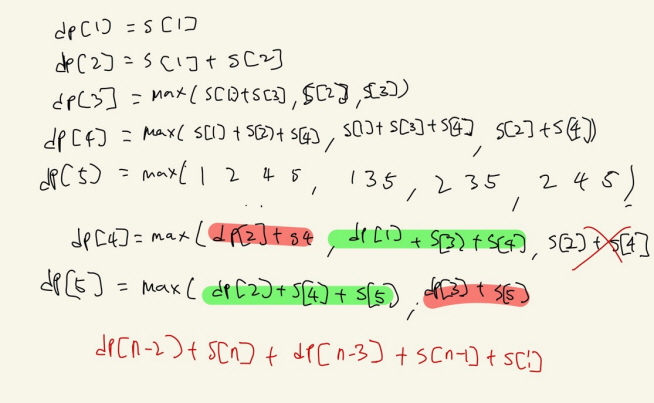 dp[1] = s[1]
dp[2] = s[1] + s[2]
dp[3] = max(s[1]+s[3], s[2], s[3])
dp[4] = max(s[1]+s[2]+s[4], s[1]+s[3]+s[4], s[2]+s[4])
dp[5] = max(1 2 4 5, 1 3 5, 2 3 5, 2 4 5)
dp[4] = max(dp[2]+s4, dp[1]+s[3]+s[4], s[2]+s[4]
dp[5] = max(dp[2]+s[4]+s[5], dp[3]+s[5]
dp[n-2]+s[n] + dp[n-3]+s[n-1]+s[i]